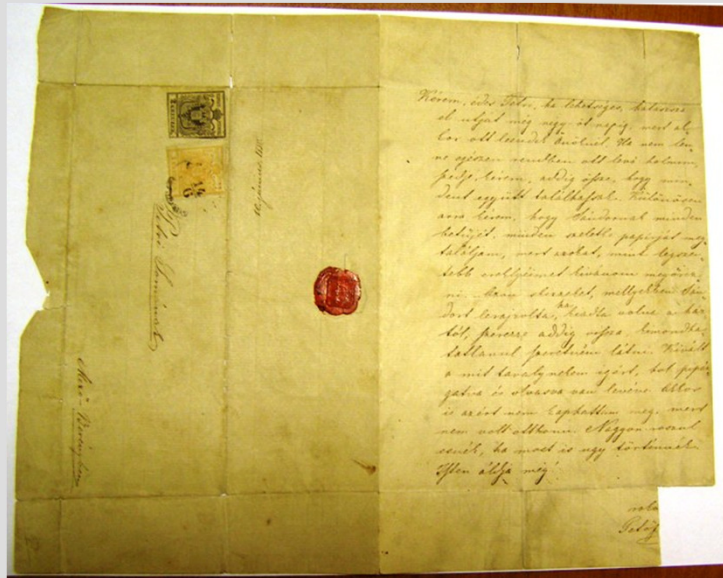 Kérem, édes Petőm, ha lehetséges, halassza
el utját még négy öt napig, mert ak-
kor ott leszek önöknél. Ha nem len-
ne egészen rendben ott levő holmim,
szedje, kérem, addig össze, hogy min-
dent együtt találhassak. Különösen
arra kérem, hogy Sándornak minden
betűjét, minden szelet papirját meg-
találjam, mert azokat, mint legszen-
tebb ereklyéimet kivánom megőriz-
ni. Azon skizzeket, mellyekben Sán-
dort lerajzolta, ha kiadta volna a ház-
tól, szerezze addig vissza, lemondha-
tatlanul szeretném látni.
a mit tavaly nekem igért, hol pipáz-
gatva és olvasva van levéve. Akkor
is azért nem kaphattam meg, mert
nem volt otthon. Nagyon rosszul
esnék, ha most is ugy történnék.
Isten áldja meg!
Petőf
Mező Berényben